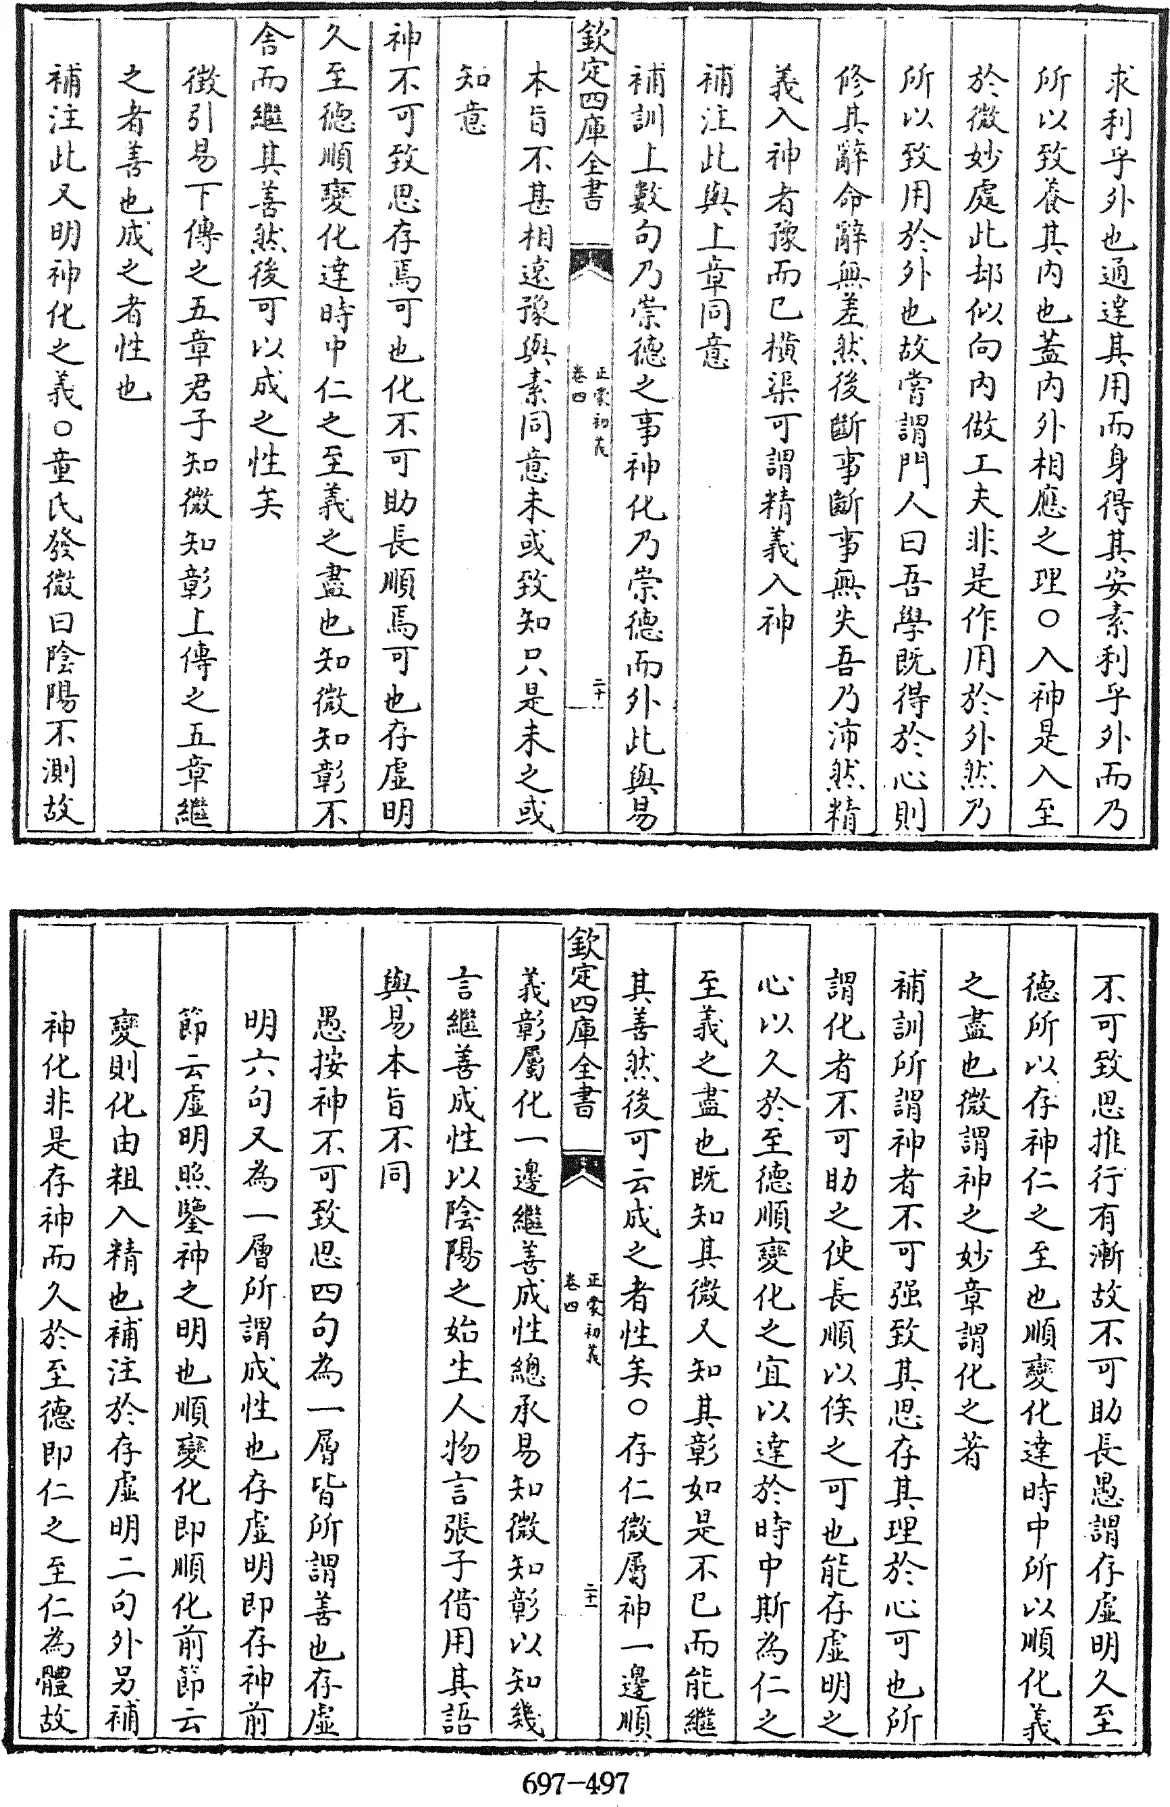 求利乎外也通達其用而身得其安素利乎外而乃
所以致養其内也葢内外相應之理○入神是入至
於微妙處此却似向内做工夫非是作用於外然乃
所以致用於外也故嘗謂門人曰吾學既得於心則
修其辭命辭無差然後斷事斷事無失吾乃沛然精
義入神者豫而已横渠可謂精義入神
補注此與上章同意
補訓上數句乃崇德之事神化乃崇德而外此與易
欽定四庫全書
正蒙初義
卷四
二十
本旨不甚相遠豫與素同意未或致知只是未之或
知意
神不可致思存焉可也化不可助長順焉可也存虚明
久至德順變化達時中仁之至義之盡也知微知彰不
舍而繼其善然後可以成之性矣
徵引易下傳之五章君子知微知彰上傳之五章繼
之者善也成之者性也
補注此又明神化之義○童氏發微曰陰陽不測故
不可致思推行有漸故不可助長愚謂存虚明久至
德所以存神仁之至也順變化達時中所以順化義
之盡也微謂神之妙章謂化之著
補訓所謂神者不可强致其思存其理於心可也所
謂化者不可助之使長順以俟之可也能存虚明之
心以久於至德順變化之宜以達於時中斯為仁之
至義之盡也既知其微又知其彰如是不已而能繼
其善然後可云成之者性矣○存仁微屬神一邊順
欽定四庫全書
正蒙初義
卷四
二十一
義彰屬化一邊繼善成性總承易知微知彰以知幾
言繼善成性以陰陽之始生人物言張子借用其語
與易本旨不同
愚按神不可致思四句為一層皆所謂善也存虚
明六句又為一層所謂成性也存虚明即存神前
節云虚明照鑒神之明也順變化即順化前節云
變則化由粗入精也補注於存虚明二句外另補
神化非是存神而久於至德即仁之至仁為體故
697-497